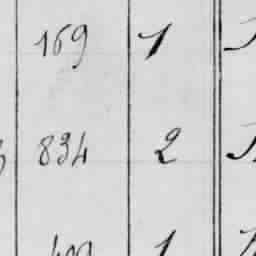 169 1
834 2
1